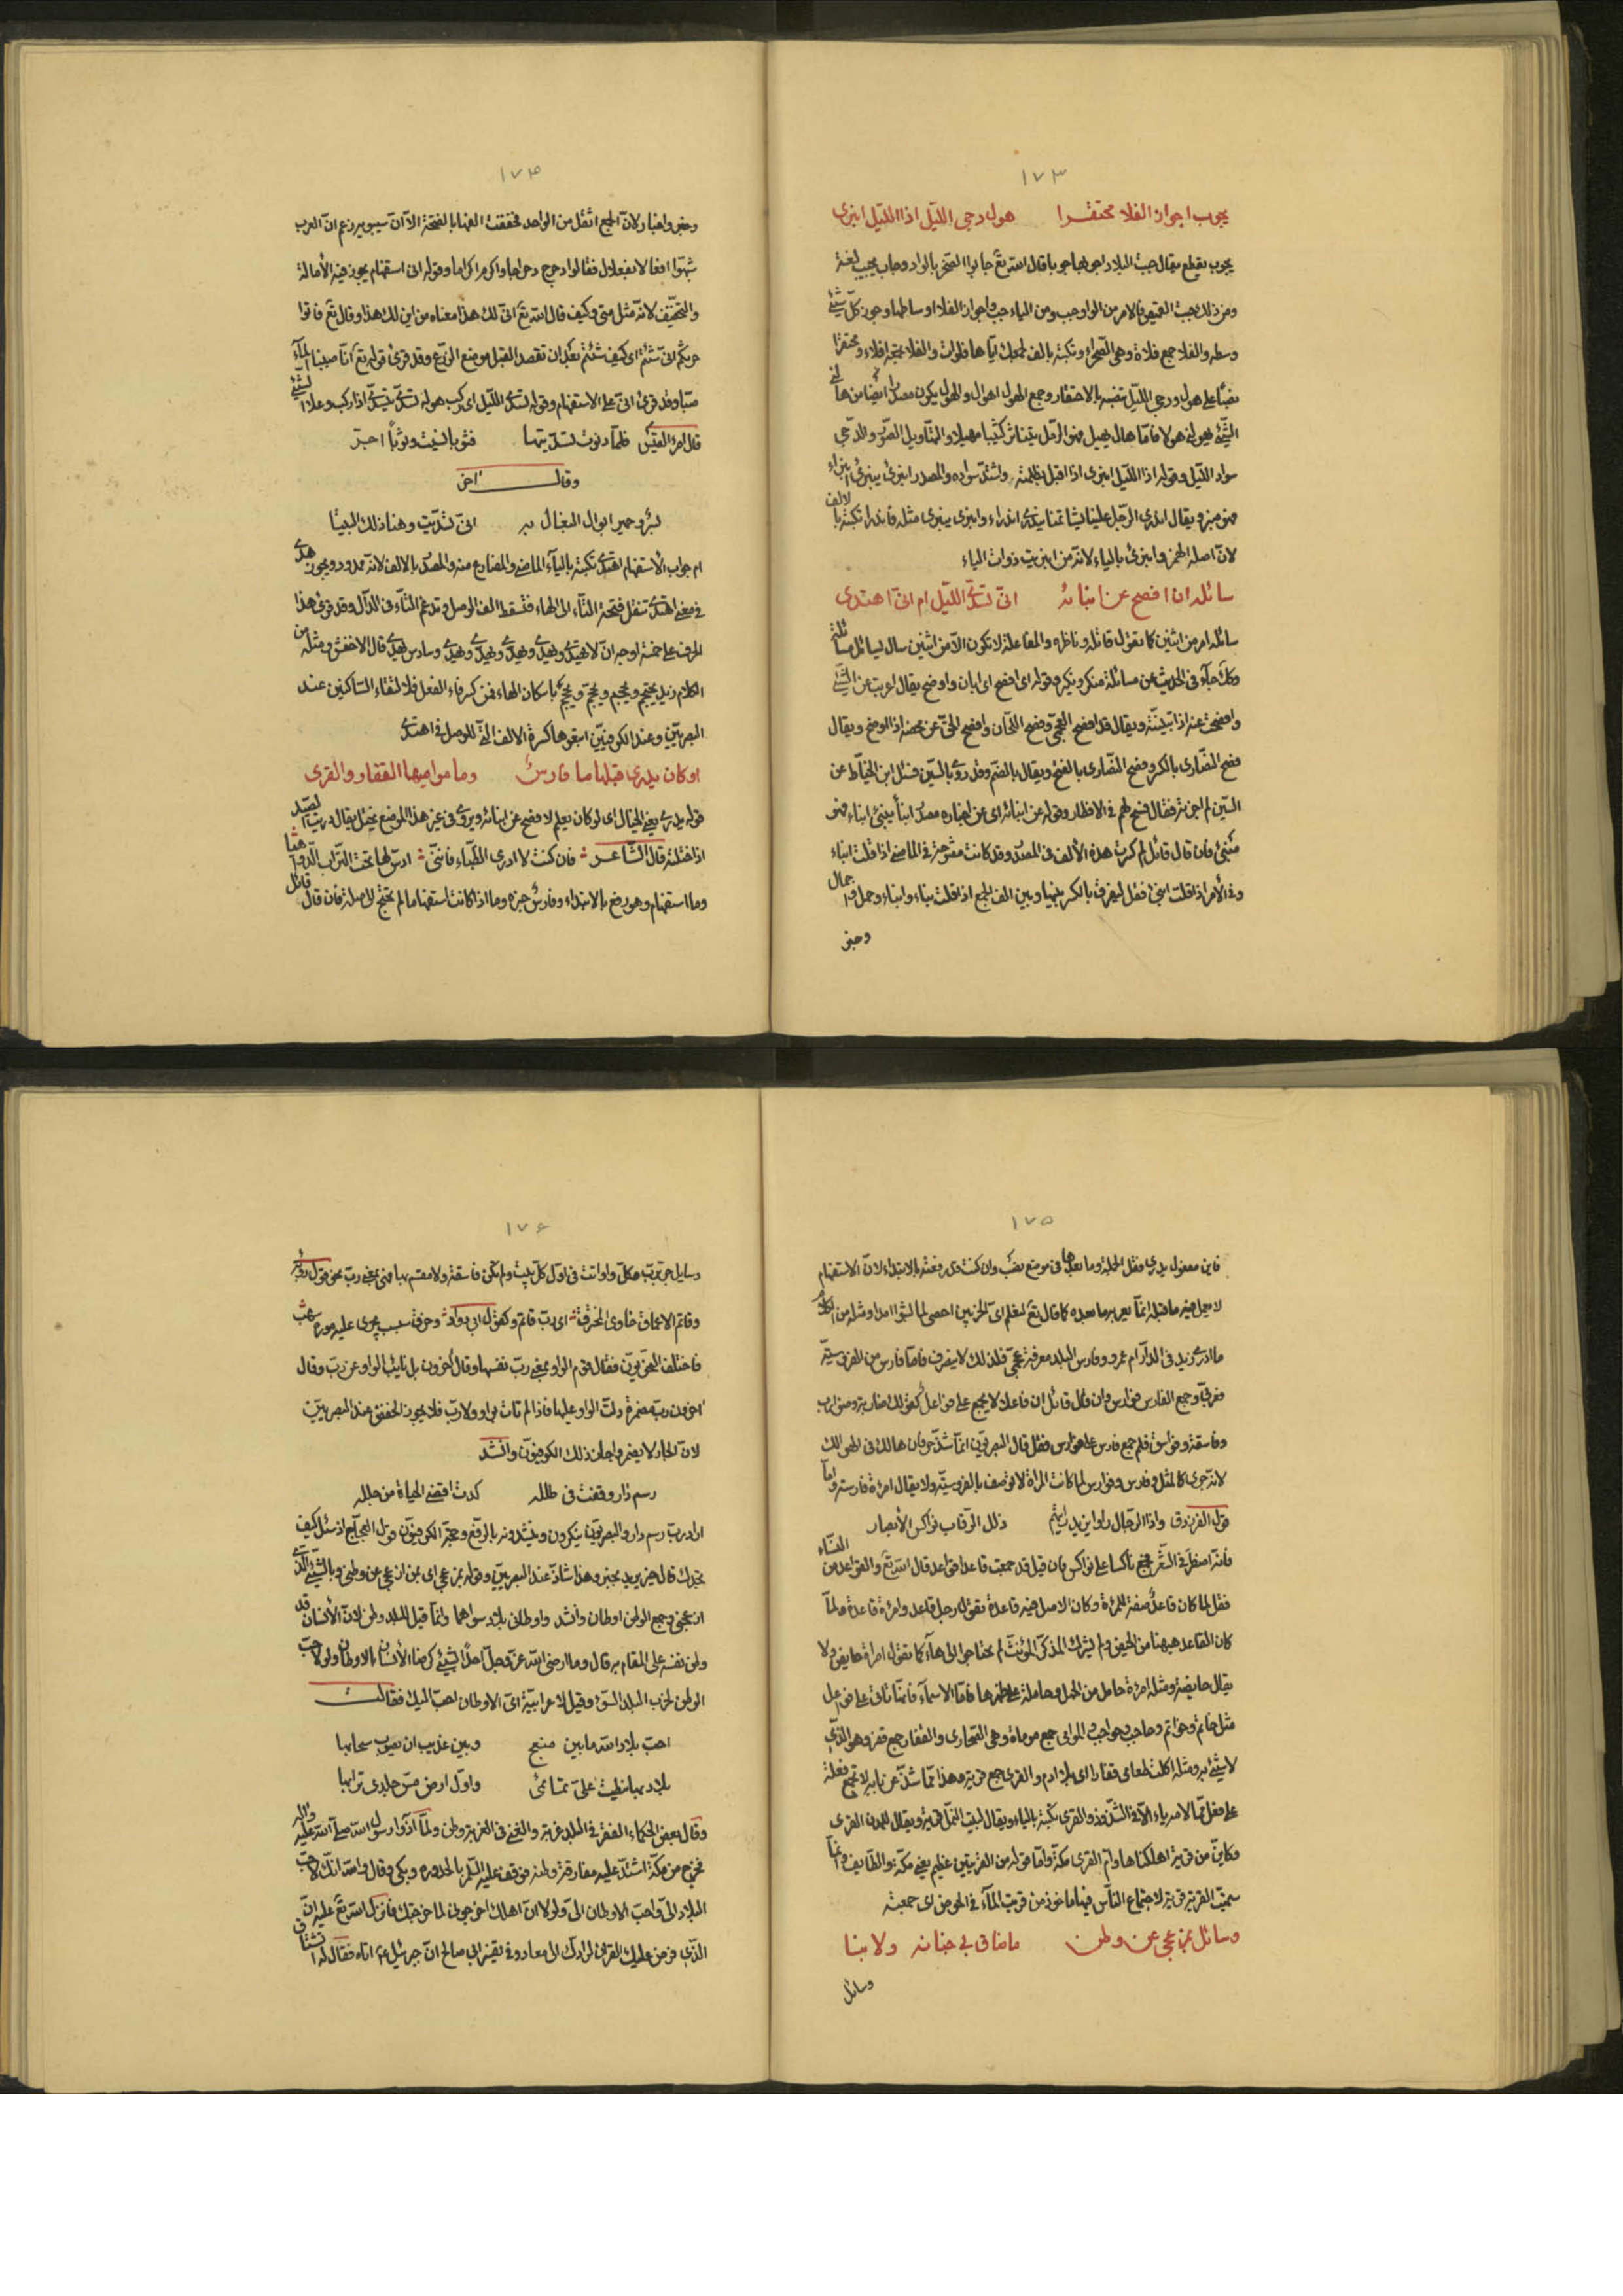 ١٧٣
يجوب اجواز الفلا محتقرا هول دجى الليل اذا الليل انبرى
يجوب يقطع يقال جبت البلاد اجوبها جوبا قال الله تع جابوا الصخر بالواد وجاب يجيب لغة
ومن ذلك جبت القميص فالامر من الواو جب ومن الياء جب واجواز الفلا اوساطها وجوز كل شئ
وسطه والفلا جمع فلاة وهي الصحراء وتكتبه بالف لجعلك اياها فلوات والفلا بمعنى افلاء ومحتقرا
على هول ودجى الليل بالاحتقار وجمع الهول اهوال والهول يكون مصدرا ايضا من هالني
الشئ يهولني هولا فاما هال يهيل فهو الرمل يتناثر كثيبا مهيلا والتهاويل الصور والدجى
سواد الليل وقوله اذا الليل انبرى اذا اقبل بظلمته واشتد سواده والمصدر انبرى ينبرى انبراء
فهو منبر ويقال اندرى الرجل علينا يشاتمنا يندرى اندراء وانبرى ينبرى مثله فاندرا تكتبه بالالف
لان اصله الهمز وانبرى بالياء لانه من انبريت ذوات الياء
سائله ان افصح عن انبائه انى تسدى الليل ام انى اهتدى
سائله امر من اثنين كما تقول قاتله وناظره والمفاعلة لا تكون الا من اثنين سال يسائل مسائلة
وكذا جاء في الحديث من مسائلة منكر ونكير وقوله اى افصح اى ابان واوضح يقال اعربت عن الشئ
وافصحت عنه اذا تبينته ويقال قد افصح العجمى وفصح اللحان وافصح الحق عن محضه اذا اوضح ويقال
فصح النصارى بالكسر وفصح النصارى بالفتح ويقال بالضم وقد روى بالسين فسئل ابن الخياط عن
السين لم الجن ثر فقال فسح لهم في الافطار وقوله عن انبائه اى عن اخباره مصدر انبأ ينبئ انباء فهو
منبئ فان قال قائل لم كسرت هذه الالف في المصدر وقد كانت مفتوحة في الماضي اذا قلت انباء
وفي الامر اذا قلت انبئ فقل ليفرق بالكسر بينها وبين الف الجمع اذا قلت نباء وانباء وحمل واحمال
وخبر
١٧٤
وخبر واخبار لان الجمع اثقل من الواحد فخففت الفها بالفتحة الا ان سيبويه زعم ان العرب
شبهوا افعالا بفعلال فقالوا دحرج دحراجا واكرم اكراما وقوله انى استفهام يجوز فيه الامالة
والتخفيف لانه مثل متى وكيف قال الله تع انى لك هذا معناه من اين لك هذا وقال تع فاتوا
حرثكم انى شئتم اى كيف شئتم بعد ان تقصد القبل موضع الزرع وقد قرئ قوله تع انا صببنا الماء
صبا وقد قرئ انى على الاستفهام وقوله تسدى الليل اى ركب هوله تسدى يتسدى اذا ركب وعلا الشئ
قال امرؤ القيس فلما دنوت تسديتها فثوبا لبست وثوبا اجر
وقال اخر
بسرو حمير ابوال البغال به انى تسديت وهنا ذلك البينا
ام جواب الاستفهام اهتدى تكتبه بالياء الماضي والمضارع منه والمصدر بالالف لانه ممدود ويجوز هدى
في معنى اهتدى تنقل فتحة التاء الى الهاء فتسقط الف الوصل وتدغم التاء في الدال وقد قرئ هذا
الحرف على خمسة اوجه ان لا يهتدى ويهدى ويهدى ويهدى ويهدى وسادس يهدى قال الاخفش ومثله من
الكلام زيد يختصم ويخصم ويخصم ويخصم باسكان الهاء فمن كسر فاء الفعل فلالتقاء الساكنين عند
البصريين وعند الكوفيين ابقوها كسرة الالف التى للوصل في اهتدى
او كان يدرى قبلها ما فارس وما مواميها القفار والقرى
قوله يدرى يعنى الخيال اى لو كان يعلم لافصح عن انبائه ويدرى في غير هذا الموضع يختل يقال دريت الصيد
اذا ختلته قال الشاعر فان كنت لا ادرى الظباء فاننى ادس لها تحت التراب الدواهيا
وما استفهام وهو رفع بالابتداء وفارس خبره وما اذا كانت استفهاما لم تحتج لاصلة فان قال قائل
١٧٥
فاين مفعول يدرى فقل الجملة وما بعدها في موضع نصب وان كنت قد رفعته بالابتداء لان الاستفهام
لا يعمل فيه ما قبله انما يعمل به ما بعده كما قال تع لنعلم اى الحزبين احصى لما لبثوا امدا ومثله من الكلام
ما ادرى زيد في الدار ام عمرو وفارس البلد معرفة عجمى فلذلك لا ينصرف فاما فارس من الفروسية
فعربى وجمع الفارس فوارس وان قال قائل ان فاعلا لا يجمع على فواعل كقولك ضاربة وضوارب
وفاسقة وفواسق فلم جمع فارس على فوارس فقل قال البصريون انما شذ حرفان هالك في الهوالك
لانه جرى كالمثل وفارس وفوارس لما كانت المراة لا توصف بالفروسية ولا يقال امراة فارسة واما
قول الفرزدق واذا الرجال راوا يزيد رايتهم ذلل الرقاب نواكس الابصار
فانه اضطر في الشعر فجمع ناكسا على نواكس فان قيل قد جمعت قاعدا قواعد قال الله تع والقواعد من النساء
فقل لما كان فاعل صفة للمراة وكان الاصل فيه قاعدة تقول رجل قاعد وامراة قاعدة فلما
كان القاعد هيهنا من الحيض ولم يشرك المذكر المؤنث لم يحتاجوا الى هاء كما تقول امراة حايض ولا
يقال حايضة ومثله امرأة حامل من الحمل وحاملة على ظهرها فاما الاسماء فانما تاتى على فواعل
مثل خاتم وخواتم وحاجب وحواجب والموامى جمع موماة وهي الصحارى والقفار جمع قفر وهو الذى
لا شئ به ومثله اكلت طعامى قفارا اى بلا ادم والقرى جمع قرية وهذا مما شذ عن بابه لا تجمع فعلة
على فعل مما لامه ياء الا في الشذوذ والقرى تكتبه بالياء ويقال لبيت النمل قرية ويقال للمدن القرى
وكاين من قرية اهلكناها وام القرى مكة واما قوله من القريتين عظيم يعنى مكة والطايف وانما
سميت القرية قرية لاجتماع الناس فيها ماخوذ من قريت الماء في الحوض اى جمعته
وسائل بمزعجى عن وطن ما ضاق بى جنابه ولا نبا
وسائل
١٧٦
وسايل جر برب وكل واو اتت في اول كل بيت ولم تكن فاسقة ولا مقسم بها فهى بمعنى رب نحو قول رؤبة
وقاتم الاعماق خاوى المخترق اى رب قاتم وكقول ابى دواد وحرف سبسب يجرى عليه موره سهب
فاختلف النحويون فقال قوم الواو بمعنى رب نفسها وقال اخرون بل نايب الواو عن رب وقال
اخرون رب مضمرة دلت الواو عليها فاذا لم تات بواو ولا رب فلا يجوز الخفض عند البصريين
لان الجار لا يضمر واجاز ذلك الكوفيون وانشد
رسم دار وقفت في طلله كدت اقضى الحياة من جلله
اراد رب رسم دار والبصريون ينكرون وينشدونه بالرفع وحجة الكوفيون قول العجاج اذ سئل كيف
تجدك قال خير يريد بخير وهذا شاذ عند البصريين وقوله بمزعجى اى بمن ازعجى عن وطنى وبالشئ الذى
ازعجنى وجمع الوطن اوطان وانشد واوطانى بلاد سواهما وانما قيل للبلد وطن لان الانسان قد
وطن نفسه على المقام به قال وما ارضى الله عز وجل احدا لشئ كرضا الانسان بالاوطان ولولا حب
الوطن لخرب البلد السوء وقيل لاعرابية اى الاوطان احب اليك فقالت
احب بلاد الله ما بين منبج وبين عذيب ان يصوب سحابها
بلاد بها نيطت على تمائمى واول ارض مس جلدى ترابها
وقال بعض الحكماء الفقر في البلد غربة والغنى في الغربة وطن ولما آذوا رسول الله صلى الله عليه واله
فخرج من مكة اشتد عليه مفارقة وطنه فوقف عليه السلم بالحزورة وبكى وقال والله انك لاحب
البلاد الى واحب الاوطان الى ولولا ان اهلك اخرجونى لما خرجتك فانزل الله تع عليه ان
الذى فرض عليك القران لرادك الى معاد وفي تفسير ابى صالح ان جبرئيل ع اتاه فقال له اتشتاق